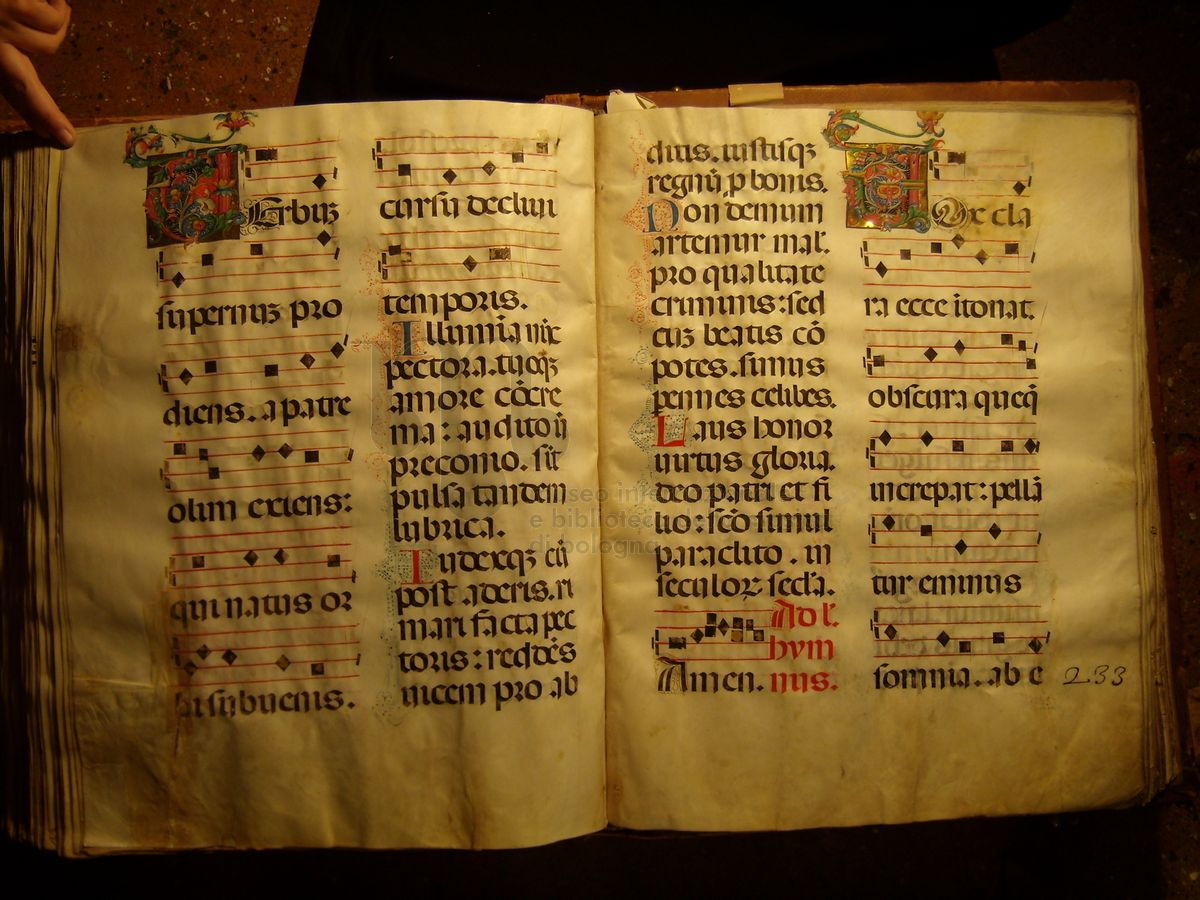 Erbuʒ
supernuʒ pro
diens. a patre
olim exiens:
qui natus or
bi subuenis.
cursu decliui
temporis.
Illumina nūc
pectora. tuoqʒ
amore cōcre
ma: audito ū
preconio. sīt
pulsa tandem
lubrica.
Iudexqʒ cū
post aderis. ri
mari facta pec
toris: reddēs
uicem pro ab
ditis. iustisqʒ
regnū p bonis.
Non demum
artemur mal'.
pro qualitate
criminis: sed
cuʒ beatis cō
potes. simus
pennes celibes.
Laus honor
uirtus gloria.
deo patri et fi
lio: scō simul
paraclito. in
seculoꝝ secla.
Amen.
Ad l'.
hym
nus.
Ox cla
ra ecce itonat.
obscura queqʒ
increpat: pellā
tur eminus
somnia. ab e
233
museo inte
e bibliotec
di bologna